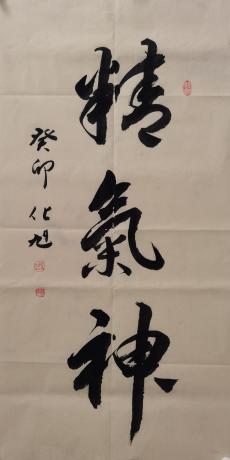 精氣神
癸卯化旭